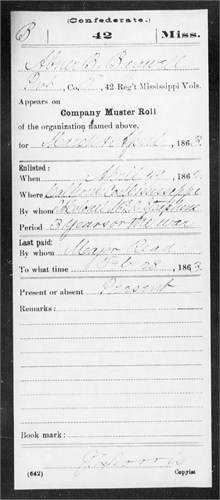 (Confederate.)
B 42 Miss.
Abner B. Braswell
Pvt, Co. , 42 Reg't Mississippi Vols.
Appears on
Company Muster Roll
of the organization named above,
for March & April, 1863.
Enlisted:
When April 12, 186
Where Calhoun Co Mississippi
By whom Colonel
Period 3 Years or the War
Last paid:
By whom Major Read
To what time Feb 28, 1863.
Present or absent Present
Remarks:
Book mark:
(642) Copyist